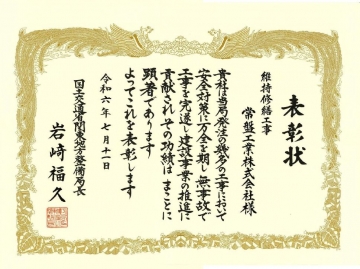 表彰状
維持修繕工事
常盤工業株式会社様
貴社は当局発注の幾多の工事において
安全対策に万全を期し無事故で
工事を完遂し建設事業の推進に
貢献されその功績はまことに
顕著であります
よってこれを表彰します
令和六年七月十一日
国土交通省関東地方整備局長
岩﨑福久